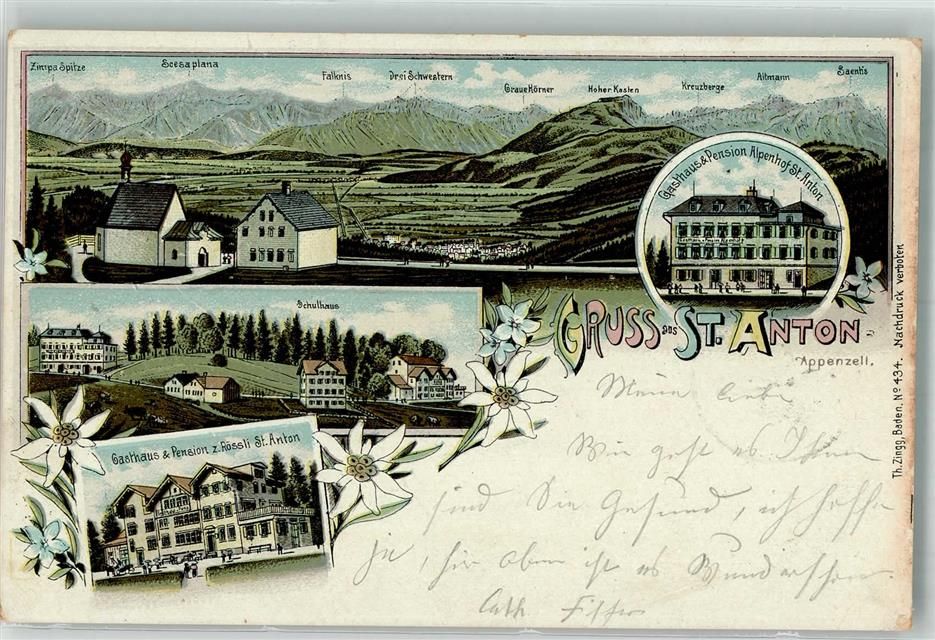 Zimpa Spitze
Scesaplana
Falknis
Drei Schwestern
Graue Hörner
Hoher Kasten
Kreuzberge
Altmann
Saentis
Gasthaus & Pension Alpenhof St. Anton
Schulhaus
GRUSS aus ST. ANTON
Appenzell.
Gasthaus & Pension z. Rössli St. Anton
Th. Zingg, Baden, No 434. Nachdruck verboten
Meine Liebe
Wie geht es Ihnen
sind Sie Gesund, ich hoffe
ja, hier oben ist es Wunderschön
Cath.